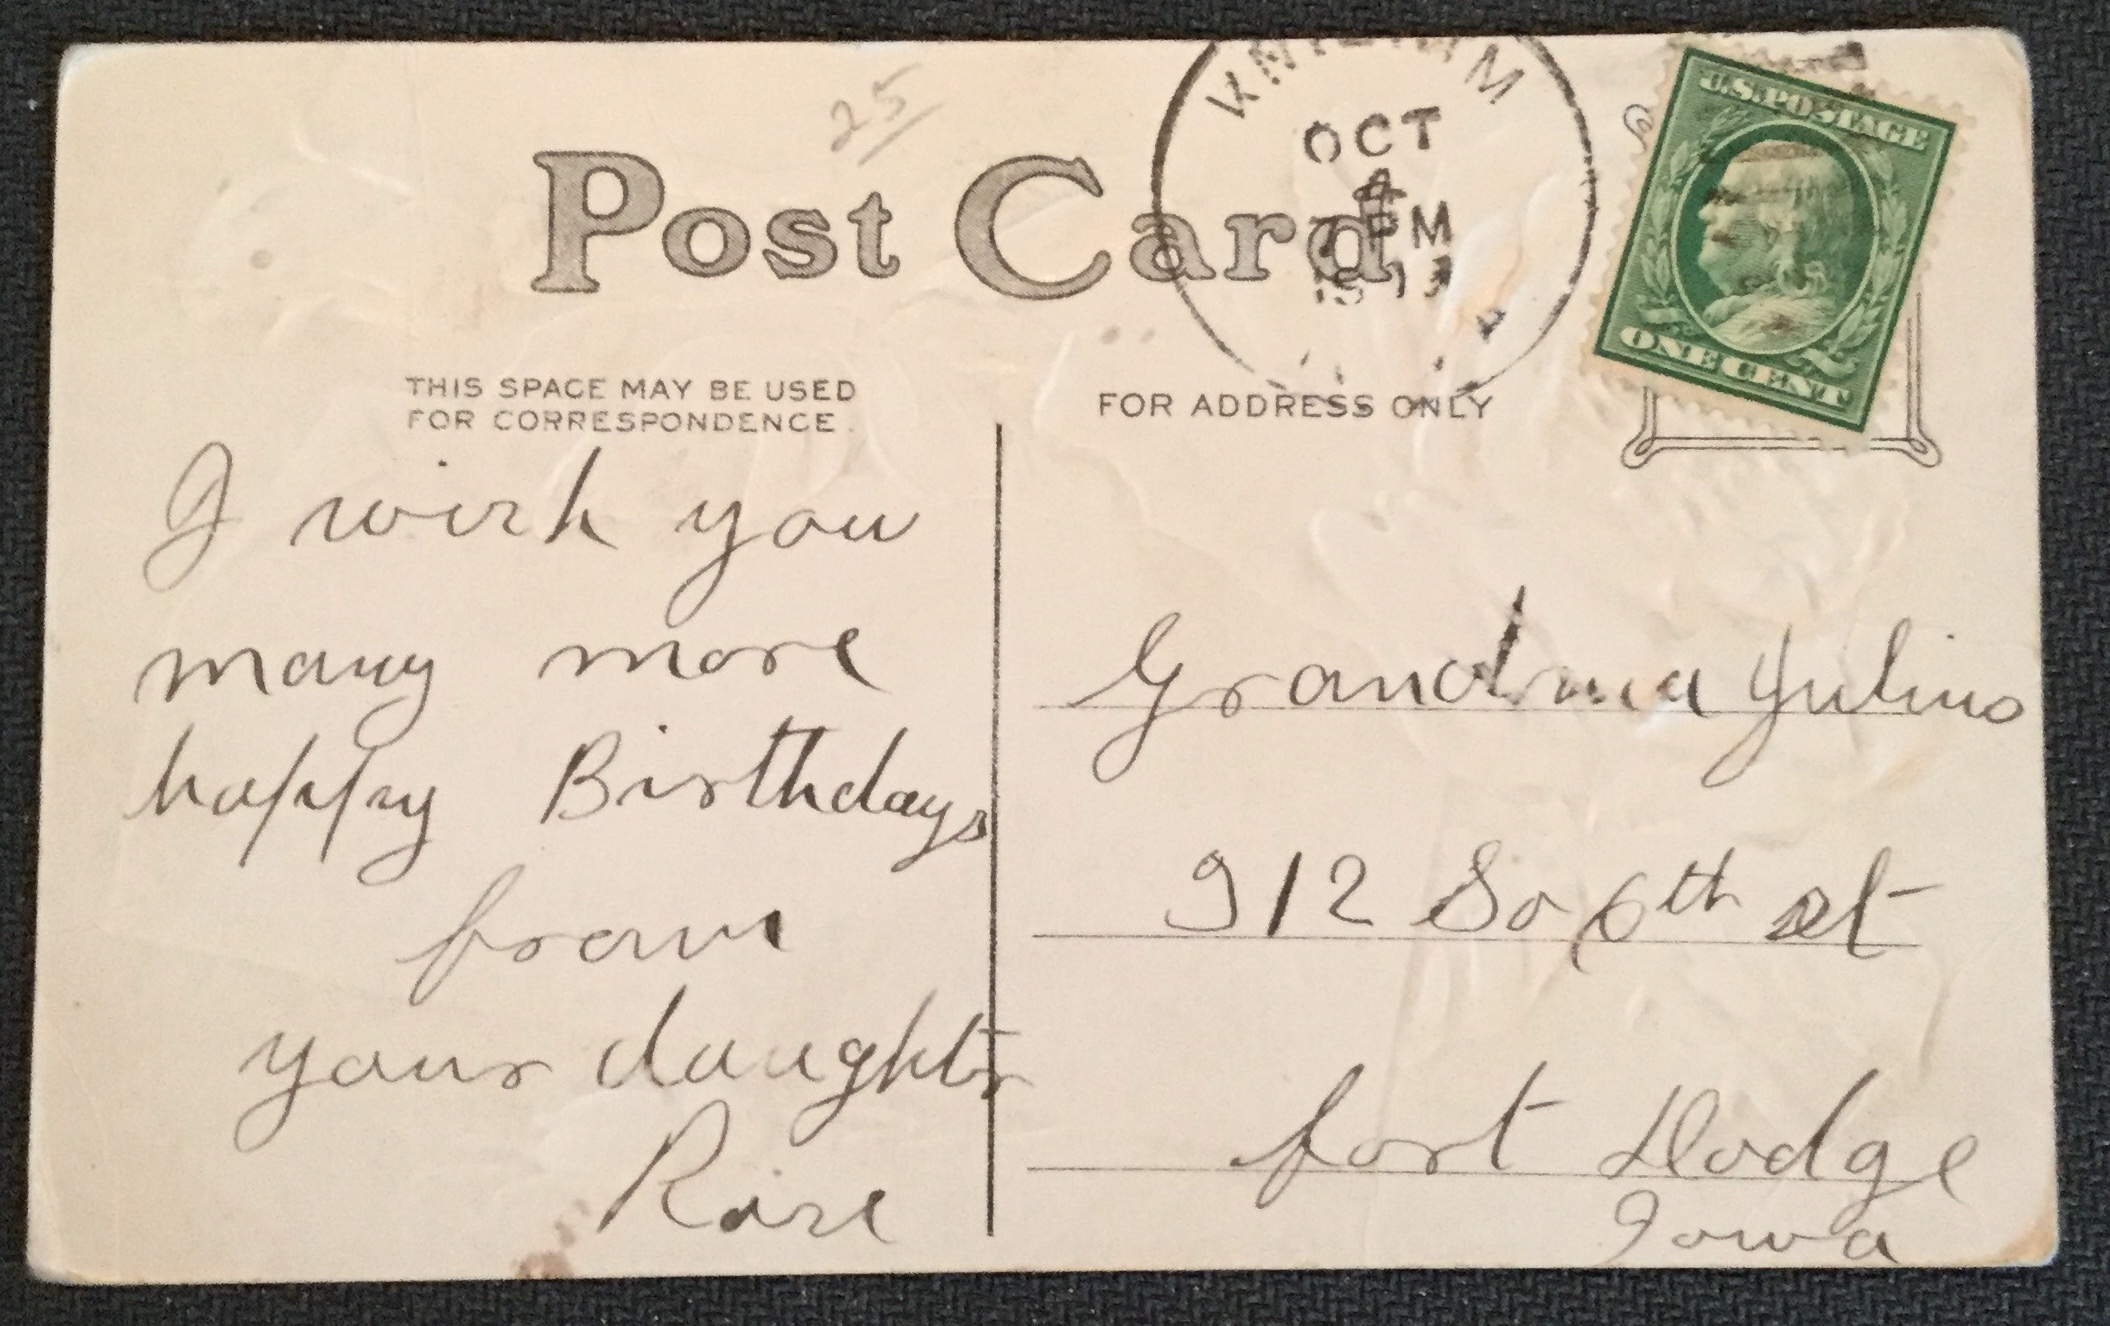 25
Post Card
OCT
4
7 PM
1913
U.S. POSTAGE
ONE CENT
THIS SPACE MAY BE USED
FOR CORRESPONDENCE.
FOR ADDRESS ONLY
I wish you
many more
happy Birthdays
from
your daughtr
Rose
Grandma Julius
912 So 6th st
fort Dodge
Iowa